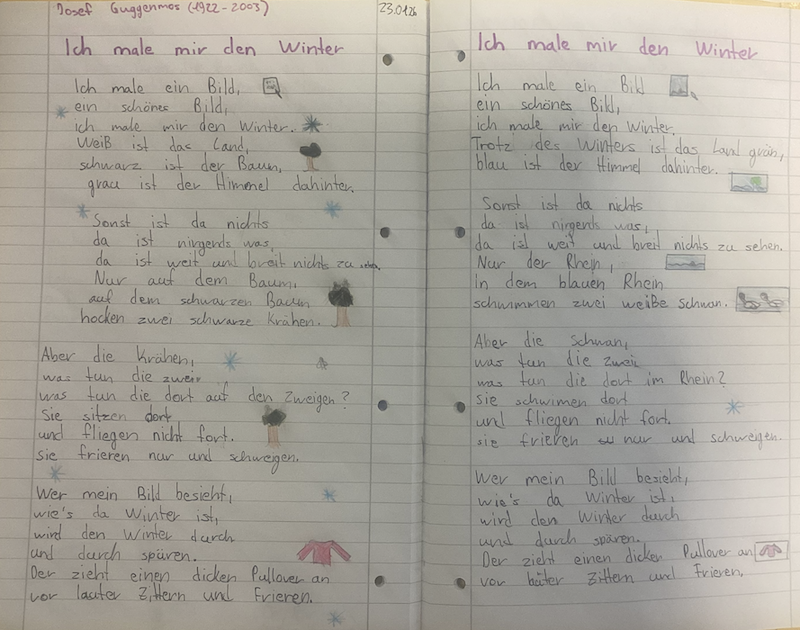 Josef Guggenmos (1922-2003)
23.01.26
Ich male mir den Winter
Ich male ein Bild,
ein schönes Bild,
ich male mir den Winter.
Weiß ist das Land,
schwarz ist der Baum,
grau ist der Himmel dahinter.
Sonst ist da nichts
da ist nirgends was,
da ist weit und breit nichts zu sehn.
Nur auf dem Baum,
auf dem schwarzen Baum
hocken zwei schwarze Krähen.
Aber die Krähen,
was tun die zwei
was tun die dort auf den Zweigen?
Sie sitzen dort
und fliegen nicht fort.
sie frieren nur und schweigen.
Wer mein Bild besieht,
wie's da Winter ist,
wird den Winter durch
und durch spüren.
Der zieht einen dicken Pullover an
vor lauter Zittern und Frieren.
Ich male mir den Winter
Ich male ein Bild
ein schönes Bild,
ich male mir den Winter.
Trotz des Winters ist das Land grün,
blau ist der Himmel dahinter.
Sonst ist da nichts
da ist nirgends was,
da ist weit und breit nichts zu sehen.
Nur der Rhein,
in dem blauen Rhein
schwimmen zwei weiße schwan.
Aber die Schwan,
was tun die zwei
was tun die dort im Rhein?
Sie schwimen dort
und fliegen nicht fort.
sie frieren nur und schweigen.
Wer mein Bild besieht,
wie's da Winter ist,
wird den Winter durch
und durch spüren.
Der zieht einen dicken Pullover an
vor Zittern und Frieren.